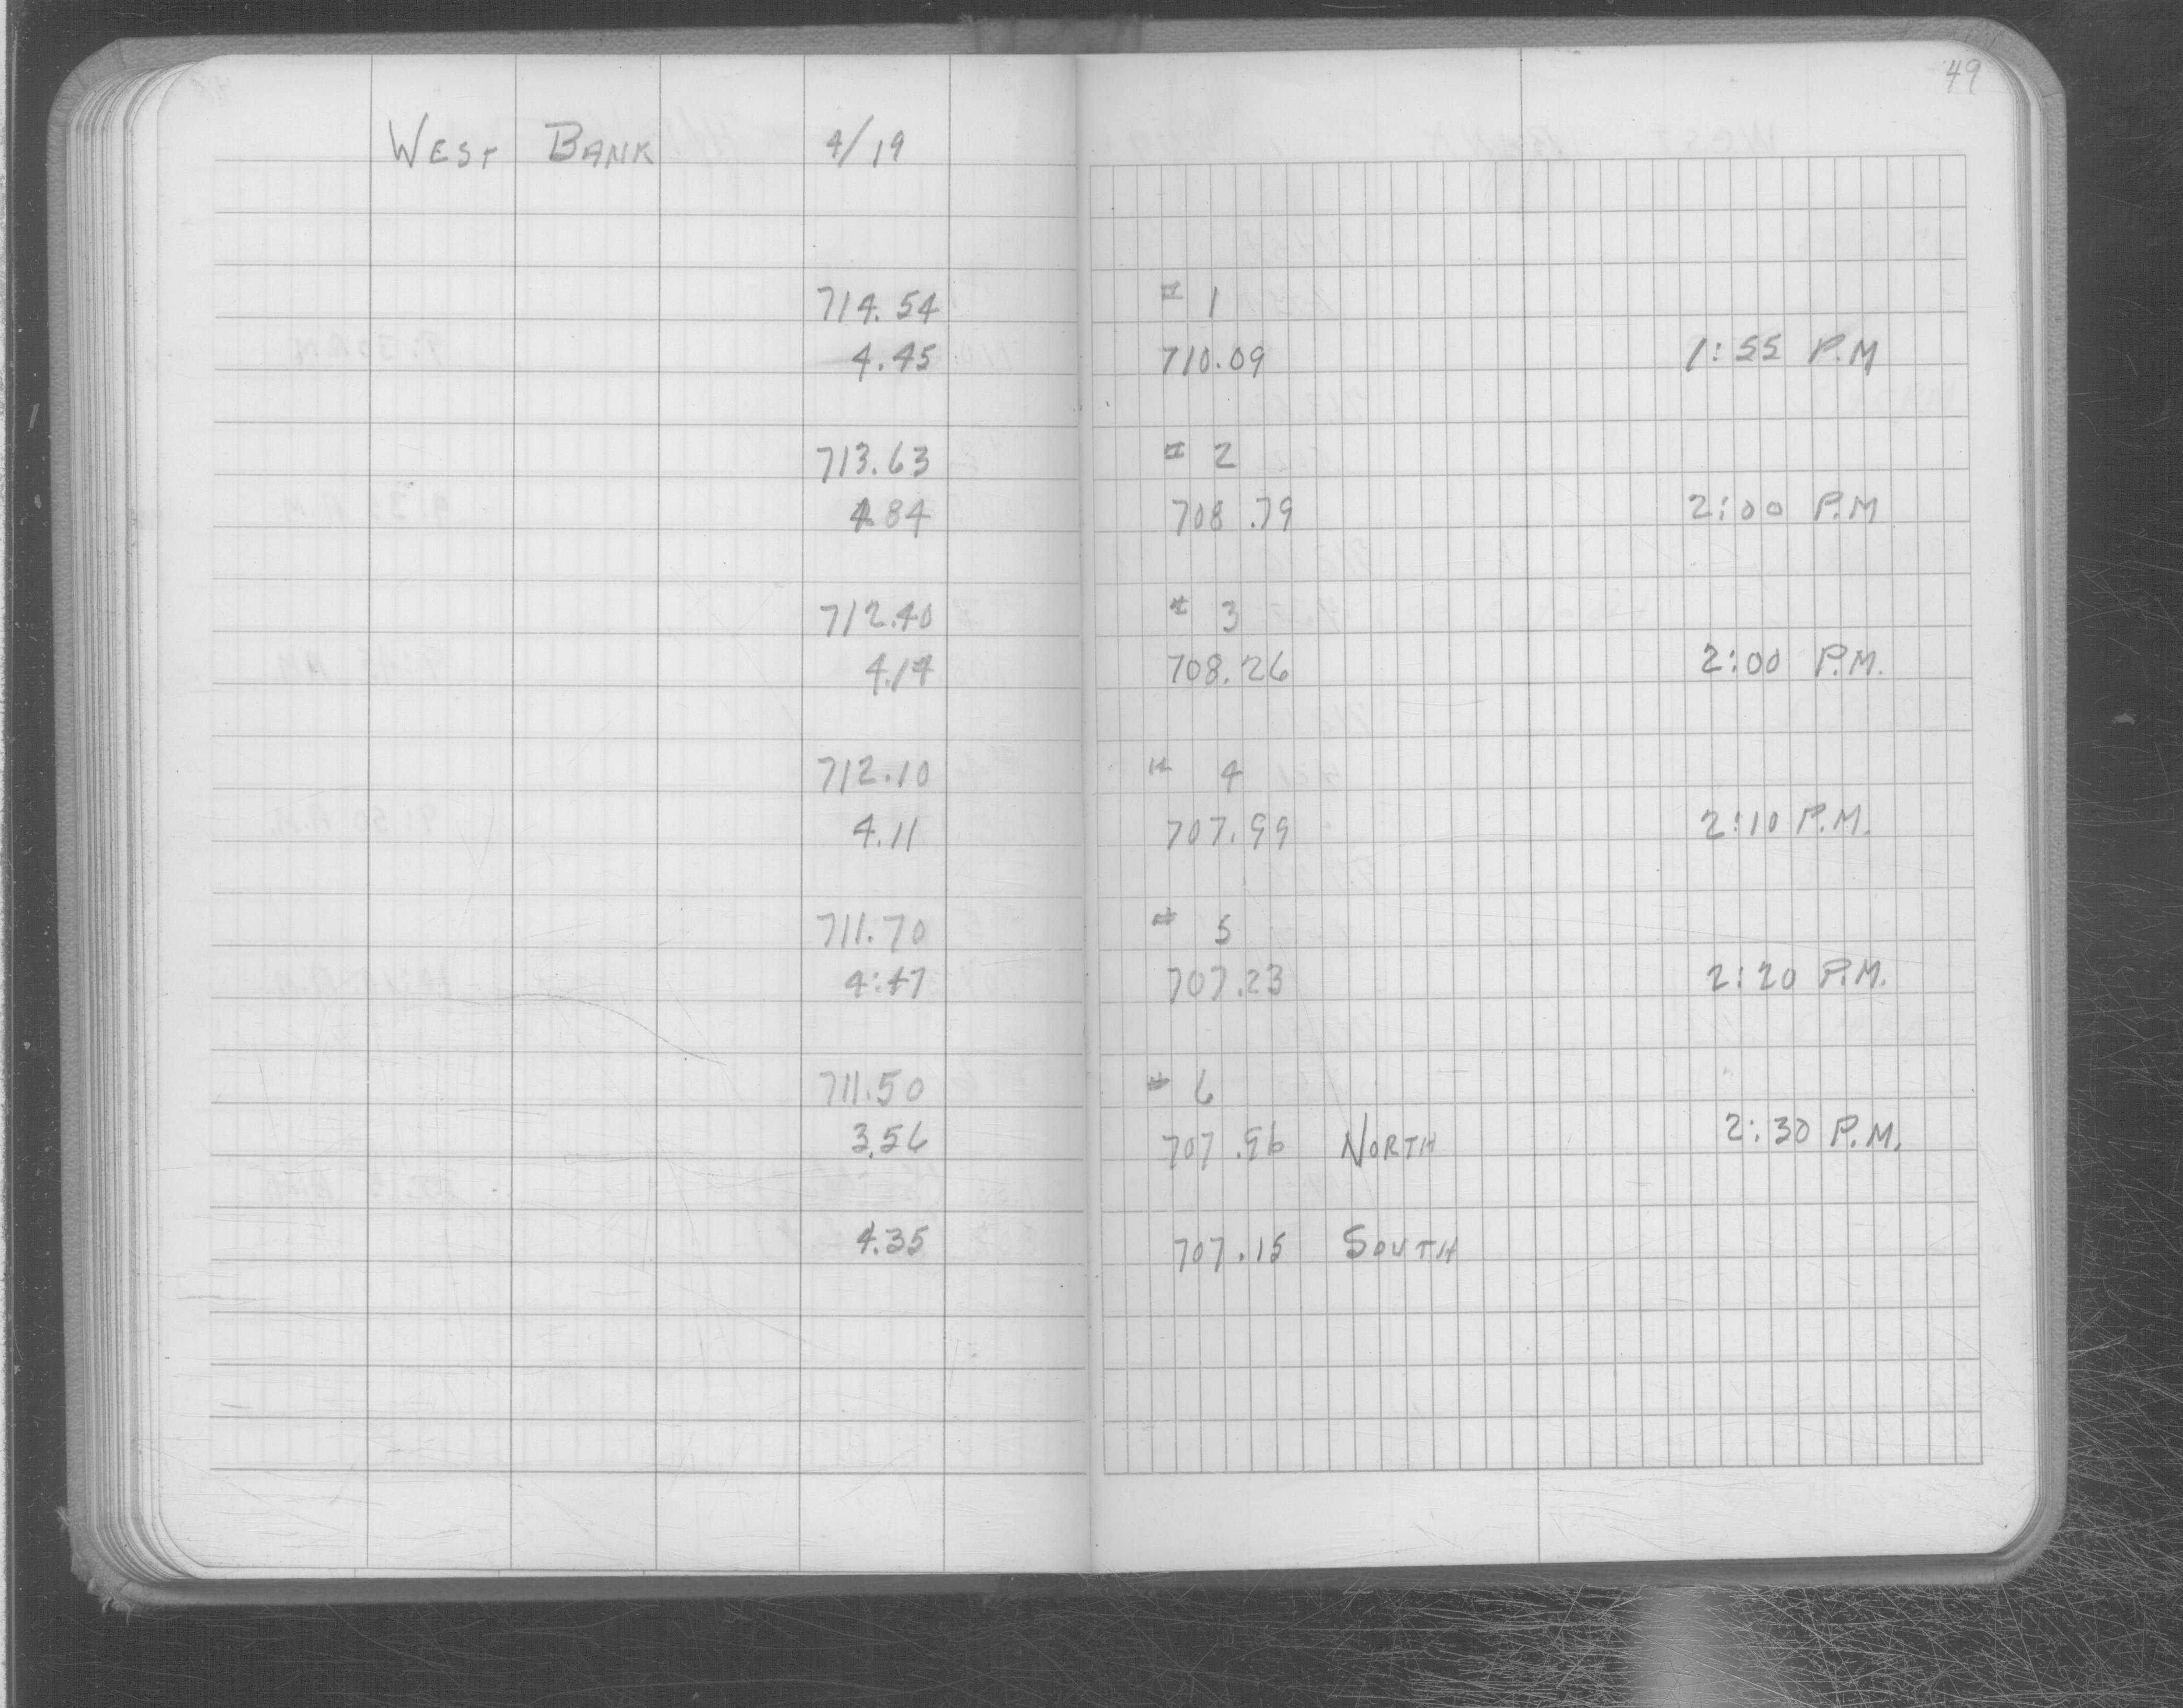 49
WEST BANK 4/19
714.54 # 1
4.45 710.09 1:55 P.M
713.63 # 2
4.84 708.79 2:00 P.M
712.40 # 3
4.14 708.26 2:00 P.M.
712.10 # 4
4.11 707.99 2:10 P.M.
711.70 # 5
4:47 707.23 2:20 P.M.
711.50 # 6
3.56 707.96 NORTH 2:30 P.M.
4.35 707.15 SOUTH